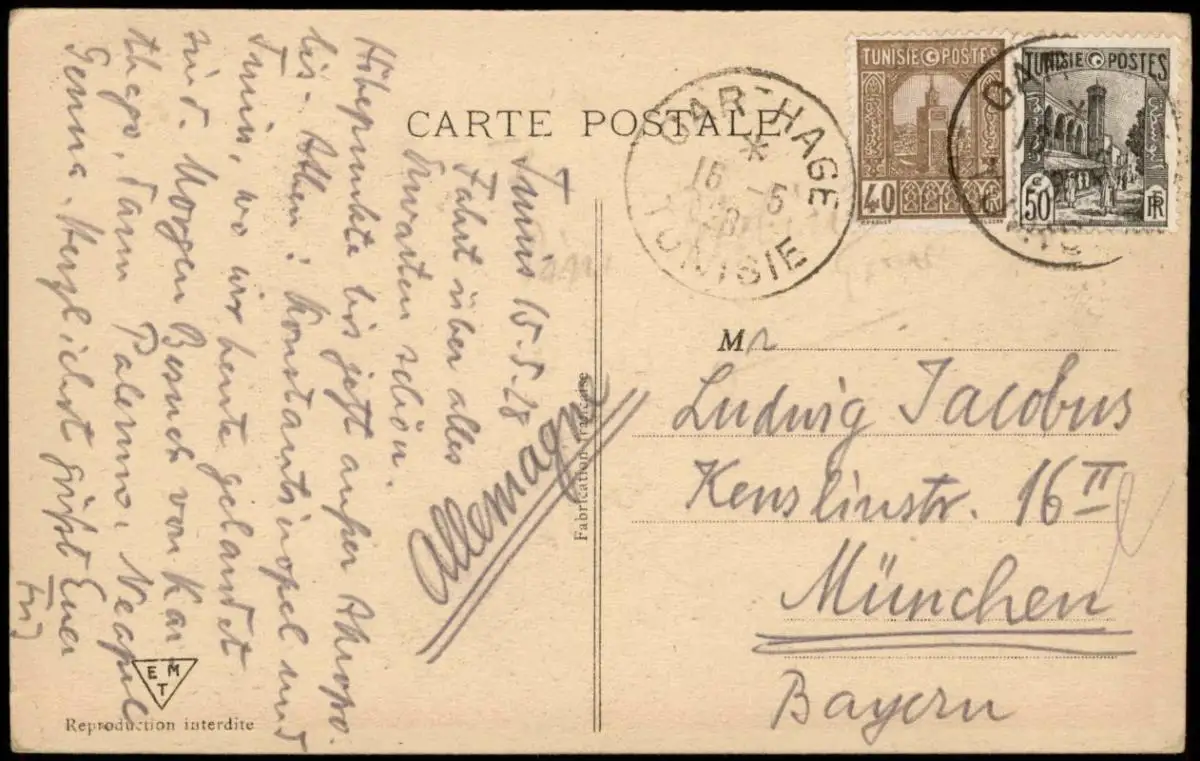 CARTE POSTALE
Tunis 15.5.28
Fahrt über alles
Erwarten schön.
Höhepunkte bis jetzt außer Akropo-
lis-Athen: Konstantinopel und
Tunis, wo wir heute gelandet
sind. Morgen Besuch von Kar-
thago, dann Palermo, Neapel
Genua. Herzlichst grüßt Euer
Allemagne
Fabrication française
CARTHAGE
*
16 -5
TUNISIE
TUNISIE POSTES
40
TUNISIE POSTES
50
RF
M
Ludwig Jacobus
Kenslinstr. 16 II
München
Bayern
EMT
Reproduction interdite